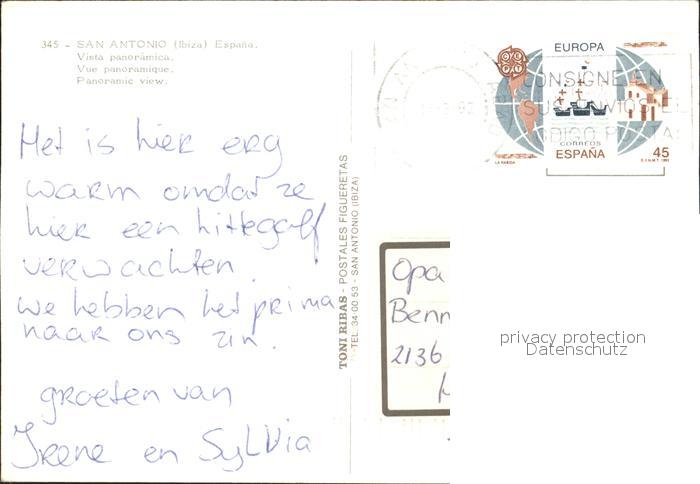 345 - SAN ANTONIO (Ibiza) España.
Vista panorámica.
Vue panoramique.
Panoramic view.
Het is hier erg
warm omdat ze
hier een hittegolf
verwachten.
we hebben het prima
naar ons zin.
groeten van
Irene en SyLVia
TONI RIBAS - POSTALES FIGUERETAS
TEL. 34 00 53 - SAN ANTONIO (IBIZA)
EUROPA
CONSIGNE EN
SUS ENVIOS EL
CODIGO POSTAL
92
CORREOS
ESPAÑA
45
LA RABIDA
F.N.M.T. 1992
Opa
Benn
2136
privacy protection
Datenschutz